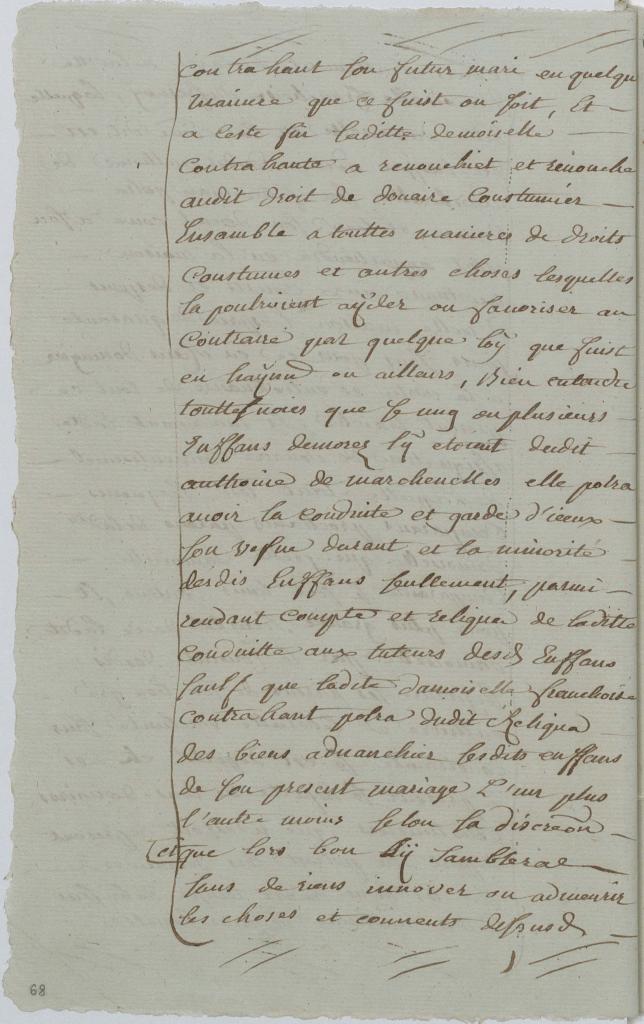 contrahant son futur mari en quelqu
maniere que ce fuist ou soit, Et
a ceste fin laditte demoiselle
Contrahante a renonchiet et renonche
audit droit de douaire Coustumier
Ensamble a touttes manieres de droits
Coustumes et autres choses lesquelles
la poulroient aÿder ou favoriser au
Contraire par quelque loÿ que fuist
en haÿnn ou ailleurs, Bien entendu
touttesvoies que se ung ou plusieurs
Enffans demorez lÿ etoient dudit
anthoine de marchenelles elle polra
avoir la conduite et garde d'iceux
son vesve durant et la minorité
desdis Enffans seullement, parmi
rendant compte et reliqua de laditte
conduitte aux tuteurs desd Enffans
sauff que ladite damoiselle franchoise
contrahant polra dudit Reliqua
des biens advanchier lesdits enffans
de son present mariage L'un plus
l'autre moins selon sa discreon
et que lors bon lÿ samblerat
sans de riens innover ou admenrir
les choses et convents desusd
68